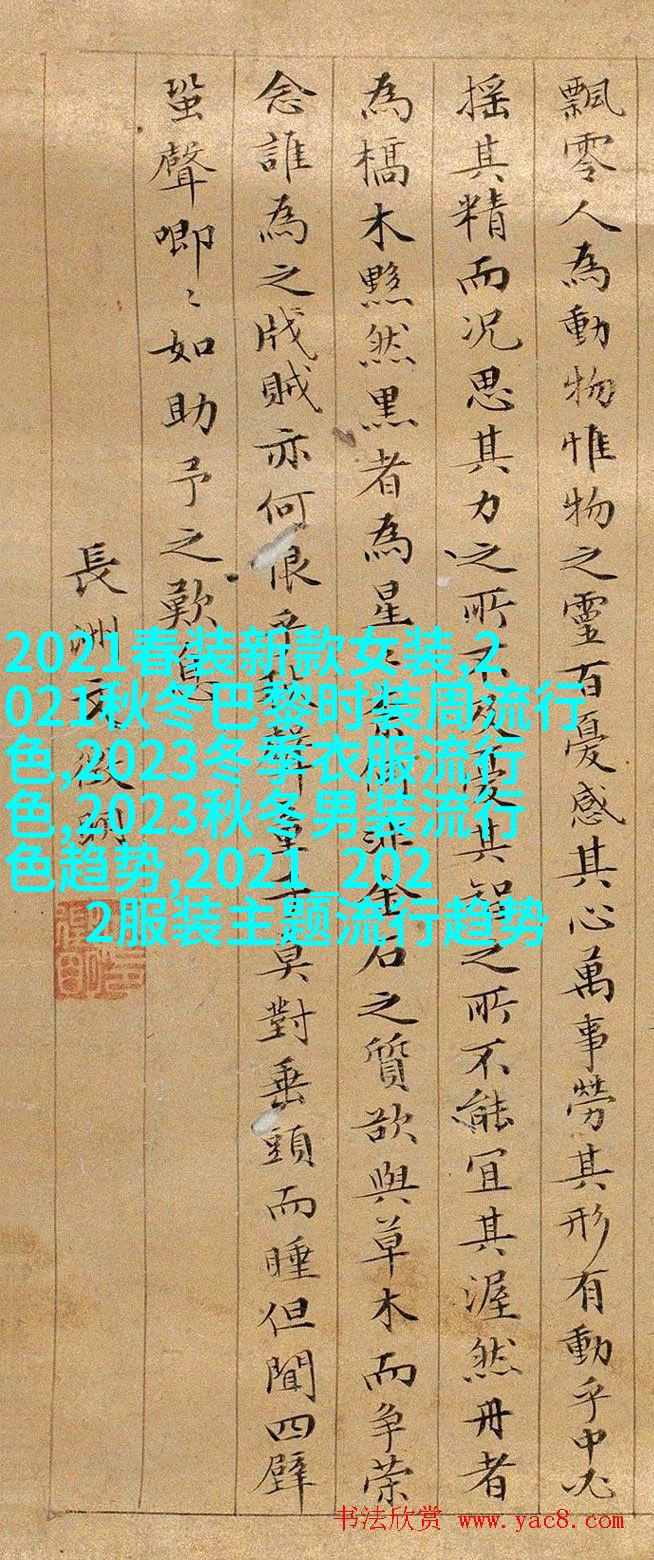 飄零人為動物惟物之靈百憂感其心萬事勞其形有動乎中必
搖其精而况思其力之所不及憂其智之所不能宜其渥然丹者
為橋木黟然黒者為星奈何非金石之質欲與草木而争榮
念誰為之戕賊亦何恨乎秋聲童子莫對垂頭而睡但聞四壁
蛩聲唧〻如助予之歎息
長洲文徵明
2021春装新款女装,2
021秋冬巴黎时装周流行
色,2023冬季衣服流行
色,2023秋冬男装流行
色趋势,2021_202
2服装主题流行趋势
书法欣赏 www.yac8.com